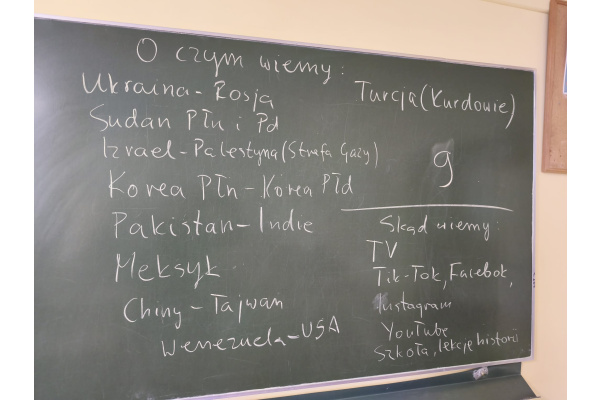 O czym wiemy:
Ukraina - Rosja
Sudan Płn i Pd
Izrael - Palestyna (Strefa Gazy)
Korea Płn - Korea Płd
Pakistan - Indie
Meksyk
Chiny - Tajwan
Wenezuela - USA
Turcja (Kurdowie)
9
Skąd wiemy:
TV
Tik-Tok, Facebok,
Instagram
YouTube
Szkoła, lekcje historii